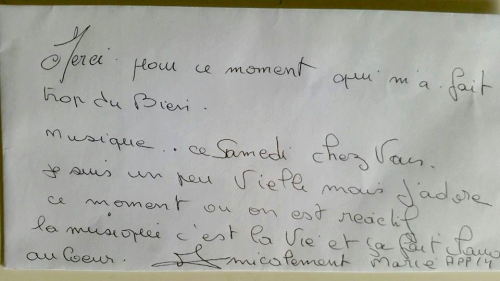 Merci pour ce moment qui m'a fait
trop du Bien.
Musique.. ce Samedi chez Vous.
Je suis un peu Vielle mais j'adore
ce moment ou on est réactif
la musique c'est la Vie et ça fait chaud
au Coeur. Amicalement Marie APP 14